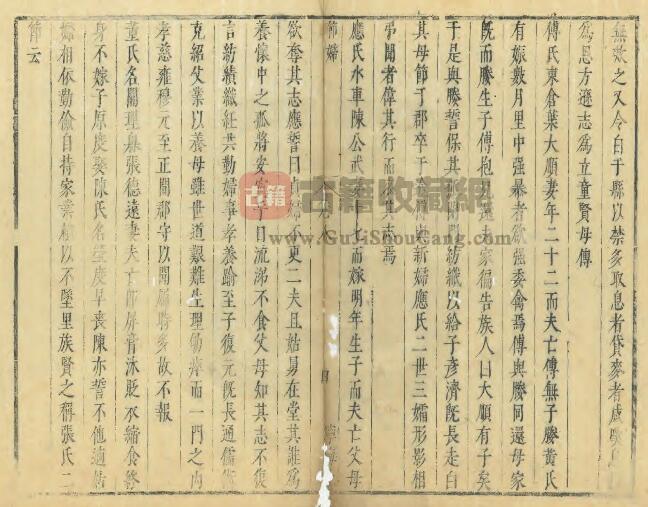 無效之又令白于縣以禁多取息者貸麥者
為思方遜志為立童賢母傳
傅氏東倉葉大順妻年二十二而夫亡傅無子媵黃氏
有娠數月里中强暴者欲強委禽焉傅與媵同還母家
旣而媵生子傅抱還夫家徧告族人曰大順有子矣
于是與媵誓保其孤閉門紡織以給子彥濟旣長走白
其母節于郡卒于新婦應氏二世三孀形影相
弔聞者偉其行而其志焉
應氏水車陳公武妻十七而嫁明年生子而夫亡父母
節婦
欲奪其志應誓曰婦不更二夫且姑舅在堂其誰為
養懷中之孤將安日流涕不食父母知其志不復
言紡績織紝共動婦事孝養踰至子復元旣長通儒
克紹父業以養母雖世道艱難生理而一門之內
孝慈雍穆元至正間郡守以聞多故不報
董氏名閏理張德遠妻夫亡不食
身不嫁子原慶娶陳氏名慶早喪陳亦誓不他適
相依勤儉自持家業以不墜里族賢之稱張氏二
節云
古籍
古籍收藏網
www.GuJiShouCang.com